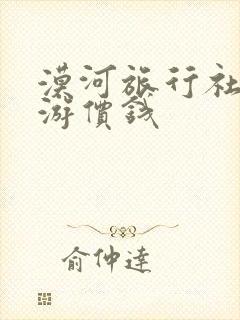 漠河旅行社
游價錢
俞仲達